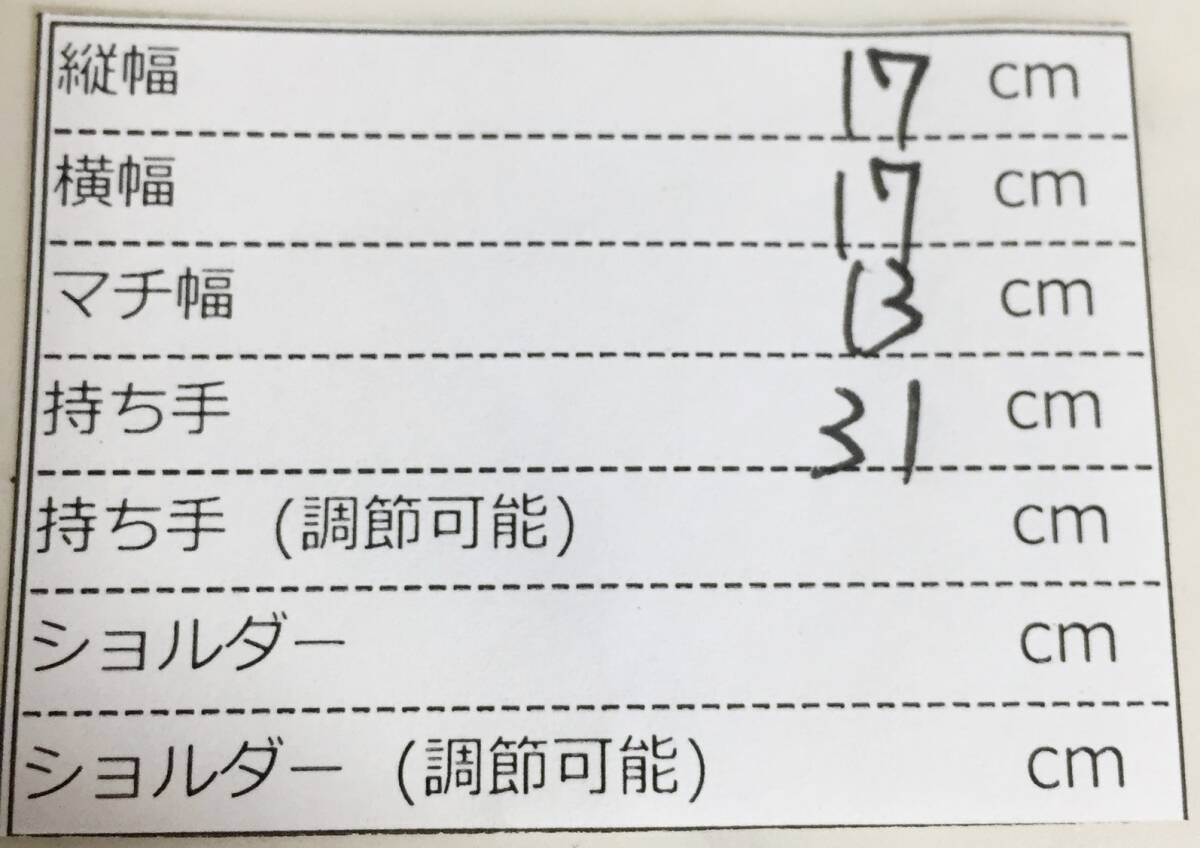 縦幅 17 cm
横幅 17 cm
マチ幅 13 cm
持ち手 31 cm
持ち手 (調節可能) cm
ショルダー cm
ショルダー (調節可能) cm